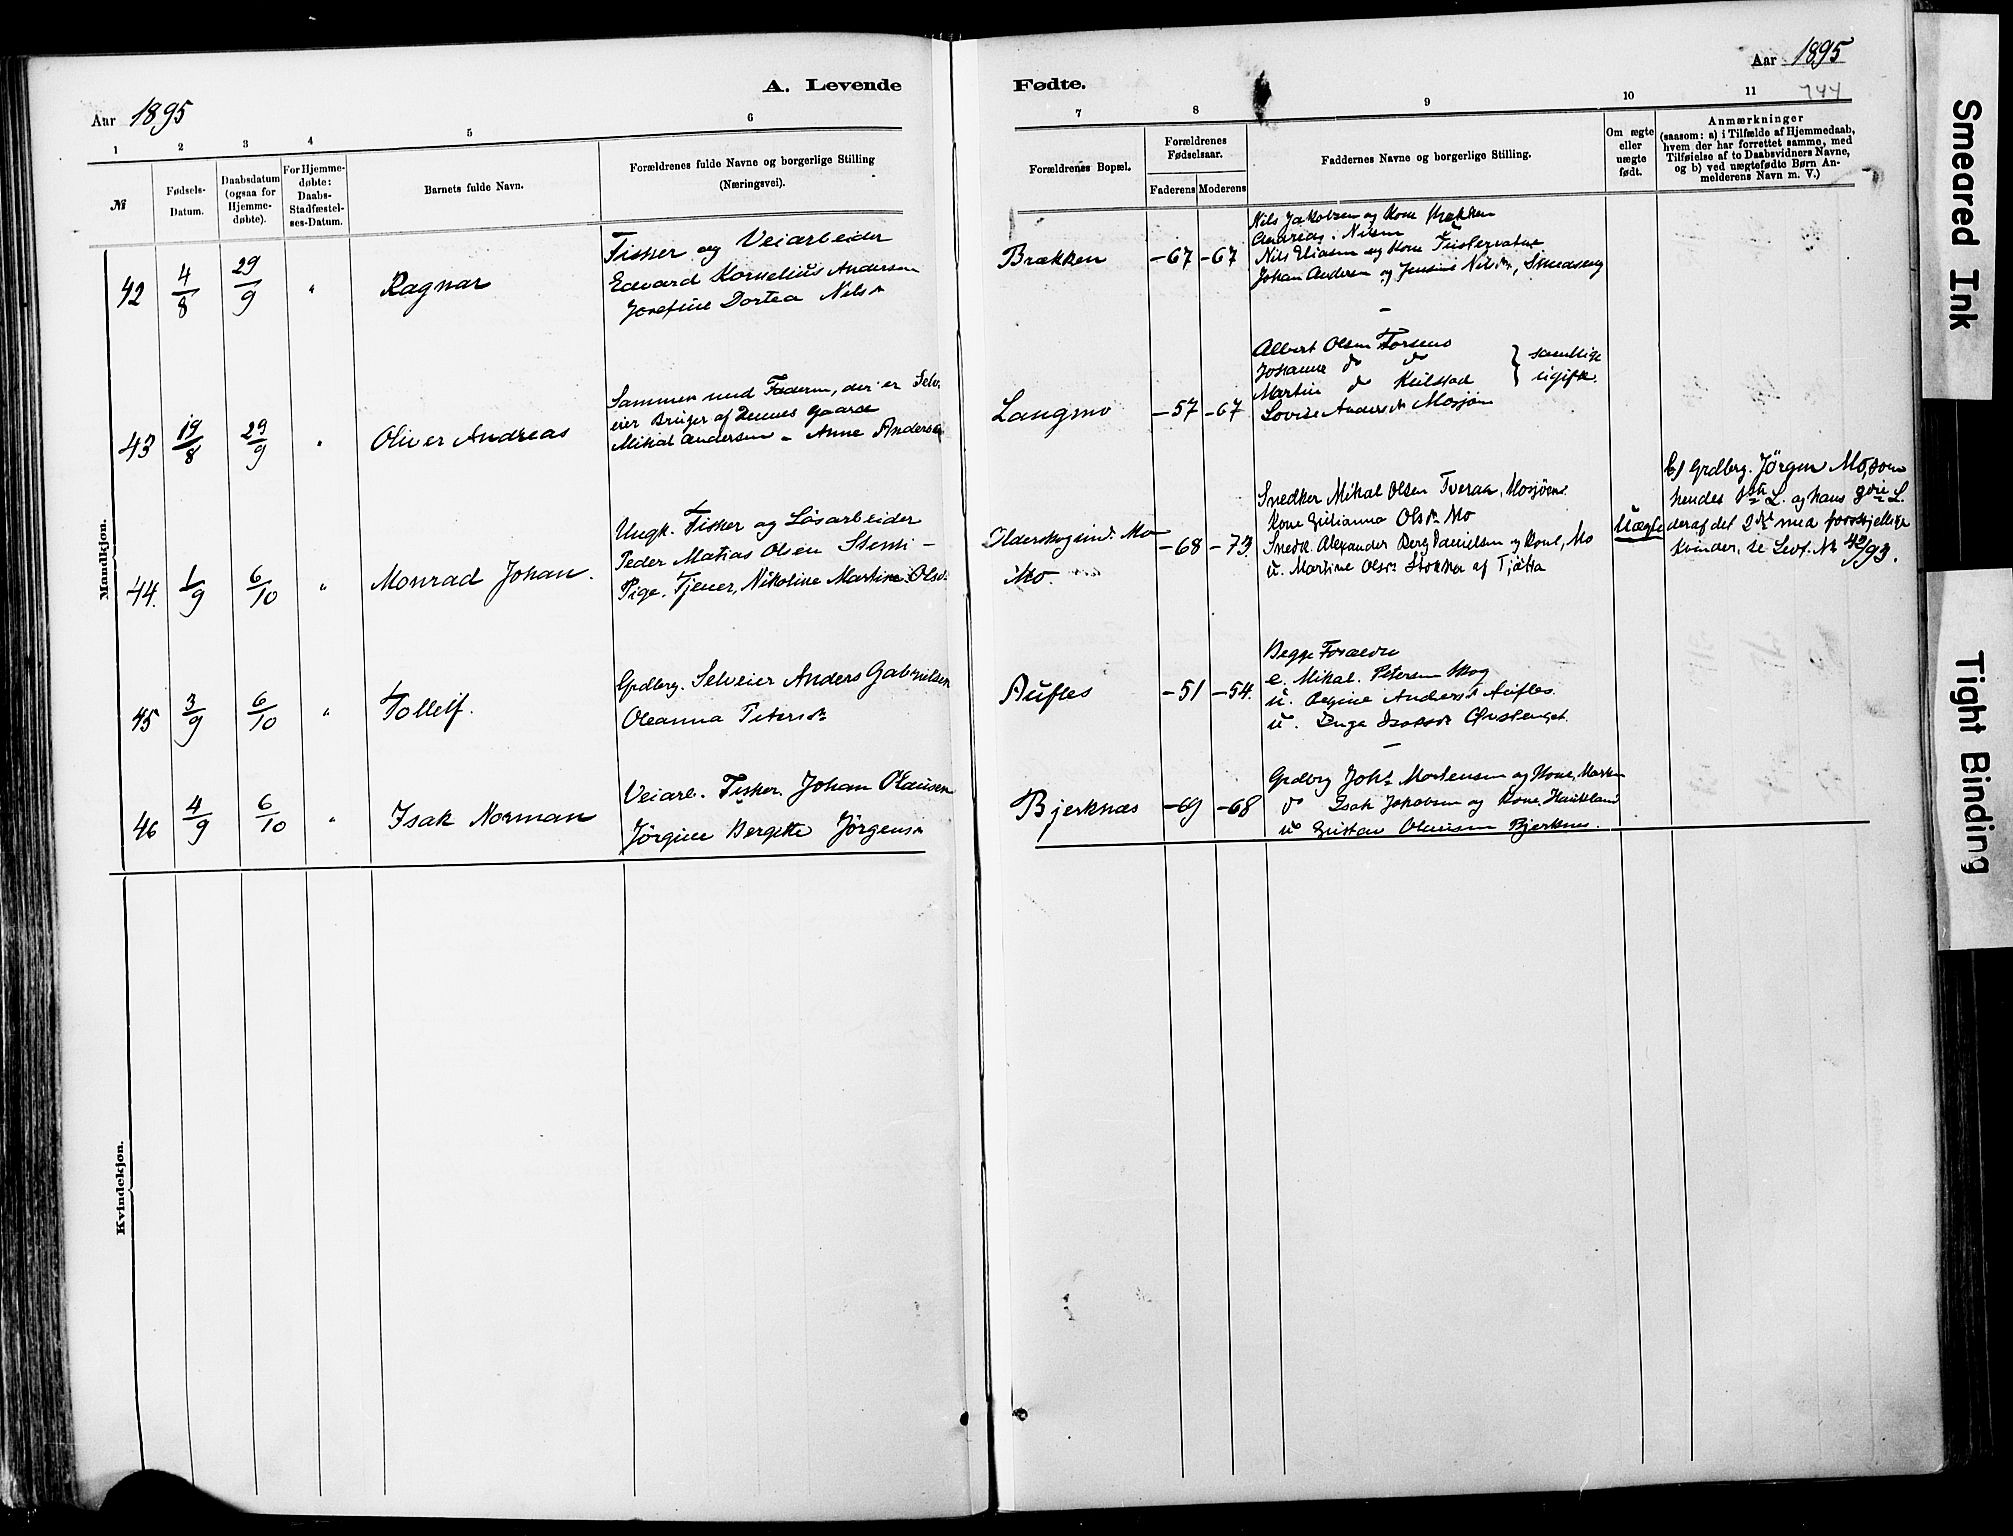 A. Levende
Aar 1895
1 2 3 4 5 6
№
Fødsels-
Datum.
Daabsdatum
(ogsaa for
Hjemme-
døbte).
For Hjemme-
døbte:
Daabs-
Stadfæstel-
ses-Datum.
Barnets fulde Navn.
Forældrenes fulde Navne og borgerlige Stilling
(Næringsvei).
Mandkjøn.
42 4/8 29/9 " Ragnar
Fisker og Veiarbeider
Edvard Kornelius Andersen
Josefine Dortea Nilsd.
43 19/8 29/9 " Oliver Andreas
Sammen med Faderen, der er Selv-
eier Bruger af Dennes Gaard
Mikal Andersen - Anne Andersd.
44. 1/9 6/10 " Monrad Johan.
Ungk. Fisker og Løsarbeider
Peder Matias Olsen
Pige. Tjener, Nikoline Martine Olsd.
45 3/9 6/10 " Tolleif.
Grdbrg. Selveier Anders Gabrielsen
Oleanna Petersd.
46 4/9 6/10 " Isak Norman
Veiarb. Fisker. Johan Olausen
Jørgine Bergitte Jørgensd.
Kvindekjøn.
Fødte.
Aar 1895
744
7 8 9 10 11
Forældrenes Bopæl.
Forældrenes
Fødselsaar.
Faderens Moderens
Faddernes Navne og borgerlige Stilling.
Om ægte
eller
uægte
født.
Anmærkninger
(saasom: a) i Tilfælde af Hjemmedaab,
hvem der har forrettet samme, med
Tilføielse af to Daabsvidners Navne,
og b) ved uægtefødte Børn An-
melderens Navn m. V.)
Brækken -67 -67
Nils Jakobsen og Kone Brækken
Andreas Nilsen
Nils Eliasen og Kone Fustervatnet
Johan Andersen og Jensine Nilsd., Smedseng
Langmo -57 -67
Albert Olsen Forsmo
Johanne do do
Martin do Kulstad
} samtlige
ugifte.
Lovise Andersd. Mosjøen
Olderskog ind. Mo
Mo. -68 -73
Snedker Mikal Olsen Tveraa, Mosjøen.
Kone Julianna Olsd. Mo
Snedk. Alexander Berg Danielsen og Kone, Mo
u. Martine Olsd. Stokka af Tjøtta
Uægte
Ef Grdbrg. Jørgen Mo, som
hendes 1ste L. og hans 3die L.
deraf det 2det med forskjellige
Kvinder, se Levf. № 42/93.
Aufles -51 -54.
Begge Forældre
e. Mikal Petersen Skog
u. Regine Andersd. Aufles.
u. Inga Isaksd.
Bjerknæs -69 -68
Grdbrg Johs Mortensen og Kone, Marken
do Isak Jakobsen og Kone, Haukland
u Gustav Olausen Bjerknes.
Smeared Ink
Tight Binding